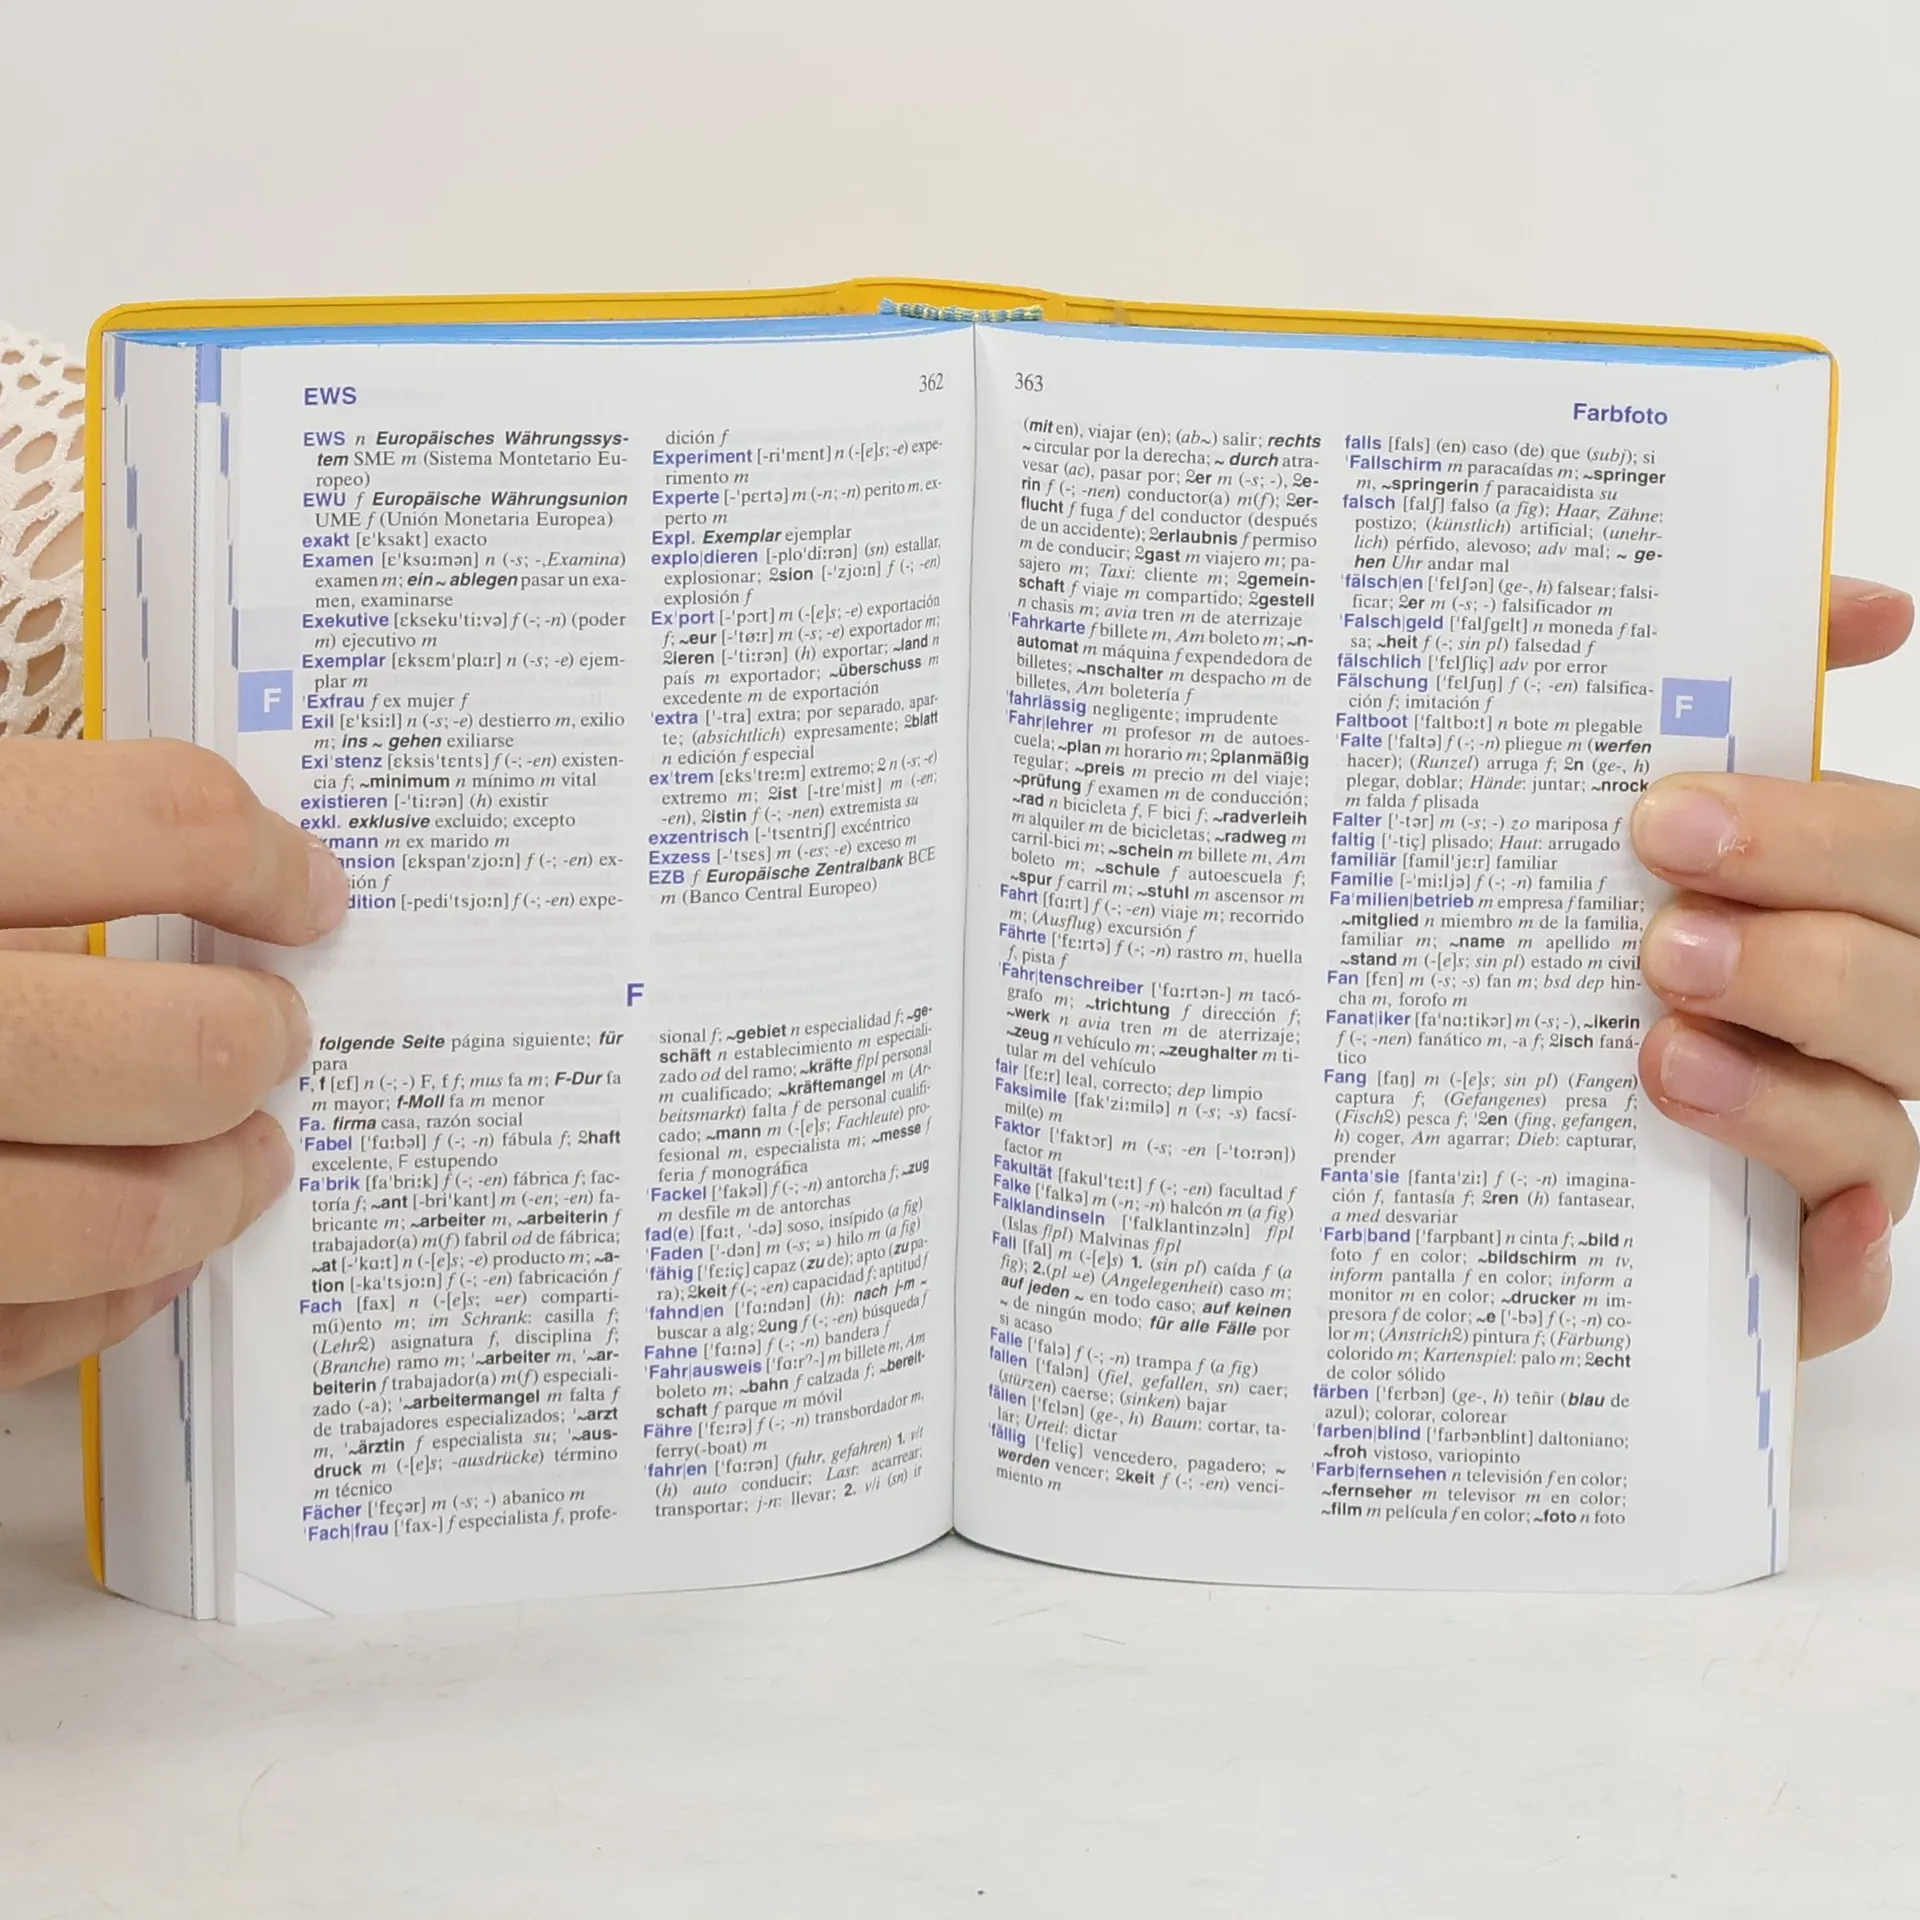 EWS
362
EWS n Europäisches Währungssys-
tem SME m (Sistema Montetario Eu-
ropeo)
EWU f Europäische Währungsunion
UME f (Unión Monetaria Europea)
exakt [ɛ'ksakt] exacto
Examen [ɛ'ksɑːmən] n (-s; -,Examina)
examen m; ein ~ ablegen pasar un exa-
men, examinarse
Exekutive [ɛkseku'tiːvə] f (-; -n) (poder
m) ejecutivo m
Exemplar [ɛksɛm'plɑːr] n (-s; -e) ejem-
plar m
'Exfrau f ex mujer f
Exil [ɛ'ksiːl] n (-s; -e) destierro m, exilio
m; ins ~ gehen exiliarse
Exi'stenz [ɛksis'tɛnts] f (-; -en) existen-
cia f; ~minimum n mínimo m vital
existieren [-'tiːrən] (h) existir
exkl. exklusive excluido; excepto
mann m ex marido m
[ɛkspan'zjoːn] f (-; -en) ex-
f
[-pedi'tsjoːn] f (-; -en) expe-
dición f
Experiment [-ri'mɛnt] n (-[e]s; -e) expe-
rimento m
Experte [-'pɛrtə] m (-n; -n) perito m, ex-
perto m
Expl. Exemplar ejemplar
explo|dieren [-plo'diːrən] (sn) estallar,
explosionar; 2sion [-'zjoːn] f (-; -en)
explosión f
Ex'port [-'pɔrt] m (-[e]s; -e) exportación
f; ~eur [-'tøːr] m (-s; -e) exportador m;
2ieren [-'tiːrən] (h) exportar; ~land n
país m exportador; ~überschuss m
excedente m de exportación
'extra ['-tra] extra; por separado, apar-
te; (absichtlich) expresamente; 2blatt
n edición f especial
ex'trem [ɛks'treːm] extremo; 2 n (-s; -e)
extremo m; 2ist [-tre'mist] m (-en;
-en), 2istin f (-; -nen) extremista su
exzentrisch [-'tsɛntriʃ] excéntrico
Exzess [-'tsɛs] m (-es; -e) exceso m
EZB f Europäische Zentralbank BCE
m (Banco Central Europeo)
F
F
folgende Seite página siguiente; für
para
F, f [ɛf] n (-; -) F, f f; mus fa m; F-Dur fa
m mayor; f-Moll fa m menor
Fa. firma casa, razón social
'Fabel ['fɑːbəl] f (-; -n) fábula f; 2haft
excelente, F estupendo
Fa'brik [fa'briːk] f (-; -en) fábrica f; fac-
toría f; ~ant [-bri'kant] m (-en; -en) fa-
bricante m; ~arbeiter m, ~arbeiterin f
trabajador(a) m(f) fabril od de fábrica;
~at [-'kɑːt] n (-[e]s; -e) producto m; ~a-
tion [-ka'tsjoːn] f (-; -en) fabricación f
Fach [fax] n (-[e]s; ⸚er) comparti-
m(i)ento m; im Schrank: casilla f;
(Lehr2) asignatura f, disciplina f;
(Branche) ramo m; '~arbeiter m, '~ar-
beiterin f trabajador(a) m(f) especiali-
zado (-a); '~arbeitermangel m falta f
de trabajadores especializados; '~arzt
m, '~ärztin f especialista su; '~aus-
druck m (-[e]s; -ausdrücke) término
m técnico
Fächer ['fɛçər] m (-s; -) abanico m
'Fach|frau ['fax-] f especialista f, profe-
sional f; ~gebiet n especialidad f; ~ge-
schäft n establecimiento m especiali-
zado od del ramo; ~kräfte f/pl personal
m cualificado; ~kräftemangel m (Ar-
beitsmarkt) falta f de personal cualifi-
cado; ~mann m (-[e]s; Fachleute) pro-
fesional m, especialista m; ~messe f
feria f monográfica
'Fackel ['fakəl] f (-; -n) antorcha f; ~zug
m desfile m de antorchas
fad(e) [fɑːt, '-də] soso, insípido (a fig)
'Faden ['-dən] m (-s; ⸚) hilo m (a fig)
'fähig ['fɛːiç] capaz (zu de); apto (zu pa-
ra); 2keit f (-; -en) capacidad f; aptitud f
'fahnd|en ['fɑːndən] (h): nach j-m ~
buscar a alg; 2ung f (-; -en) búsqueda f
Fahne ['fɑːnə] f (-; -n) bandera f
'Fahr|ausweis ['fɑːrˀ-] m billete m, Am
boleto m; ~bahn f calzada f; ~bereit-
schaft f parque m móvil
Fähre ['fɛːrə] f (-; -n) transbordador m,
ferry(-boat) m
'fahr|en ['fɑːrən] (fuhr, gefahren) 1. v/t
(h) auto conducir; Last: acarrear,
transportar; j-n: llevar; 2. v/i (sn) ir
363
Farbfoto
(mit en), viajar (en); (ab~) salir; rechts
~ circular por la derecha; ~ durch atra-
vesar (ac), pasar por; 2er m (-s; -), 2e-
rin f (-; -nen) conductor(a) m(f); 2er-
flucht f fuga f del conductor (después
de un accidente); 2erlaubnis f permiso
m de conducir; 2gast m viajero m; pa-
sajero m; Taxi: cliente m; 2gemein-
schaft f viaje m compartido; 2gestell
n chasis m; avia tren m de aterrizaje
'Fahrkarte f billete m, Am boleto m; ~n-
automat m máquina f expendedora de
billetes; ~nschalter m despacho m de
billetes, Am boletería f
'fahrlässig negligente; imprudente
'Fahr|lehrer m profesor m de autoes-
cuela; ~plan m horario m; 2planmäßig
regular; ~preis m precio m del viaje;
~prüfung f examen m de conducción;
~rad n bicicleta f, F bici f; ~radverleih
m alquiler m de bicicletas; ~radweg m
carril-bici m; ~schein m billete m, Am
boleto m; ~schule f autoescuela f;
~spur f carril m; ~stuhl m ascensor m
Fahrt [fɑːrt] f (-; -en) viaje m; recorrido
m; (Ausflug) excursión f
Fährte ['fɛːrtə] f (-; -n) rastro m, huella
f, pista f
'Fahr|tenschreiber ['fɑːrtən-] m tacó-
grafo m; ~trichtung f dirección f;
~werk n avia tren m de aterrizaje;
~zeug n vehículo m; ~zeughalter m ti-
tular m del vehículo
fair [fɛːr] leal, correcto; dep limpio
Faksimile [fak'ziːmilə] n (-s; -s) facsí-
mil(e) m
Faktor ['faktɔr] m (-s; -en [-'toːrən])
factor m
Fakultät [fakul'tɛːt] f (-; -en) facultad f
Falke ['falkə] m (-n; -n) halcón m (a fig)
Falklandinseln ['falklantinzəln] f/pl
(Islas f/pl) Malvinas f/pl
Fall [fal] m (-[e]s) 1. (sin pl) caída f (a
fig); 2.(pl ⸚e) (Angelegenheit) caso m;
auf jeden ~ en todo caso; auf keinen
~ de ningún modo; für alle Fälle por
si acaso
Falle ['falə] f (-; -n) trampa f (a fig)
fallen ['falən] (fiel, gefallen, sn) caer;
(stürzen) caerse; (sinken) bajar
fällen ['fɛlən] (ge-, h) Baum: cortar, ta-
lar; Urteil: dictar
'fällig ['fɛliç] vencedero, pagadero; ~
werden vencer; 2keit f (-; -en) venci-
miento m
falls [fals] (en) caso (de) que (subj); si
'Fallschirm m paracaídas m; ~springer
m, ~springerin f paracaidista su
falsch [falʃ] falso (a fig); Haar, Zähne:
postizo; (künstlich) artificial; (unehr-
lich) pérfido, alevoso; adv mal; ~ ge-
hen Uhr andar mal
'fälsch|en ['fɛlʃən] (ge-, h) falsear; falsi-
ficar; 2er m (-s; -) falsificador m
'Falsch|geld ['falʃgɛlt] n moneda f fal-
sa; ~heit f (-; sin pl) falsedad f
fälschlich ['fɛlʃliç] adv por error
Fälschung ['fɛlʃuŋ] f (-; -en) falsifica-
ción f; imitación f
Faltboot ['faltboːt] n bote m plegable
'Falte ['faltə] f (-; -n) pliegue m (werfen
hacer); (Runzel) arruga f; 2n (ge-, h)
plegar, doblar; Hände: juntar; ~nrock
m falda f plisada
Falter ['-tər] m (-s; -) zo mariposa f
faltig ['-tiç] plisado; Haut: arrugado
familiär [famil'jɛːr] familiar
Familie [-'miːljə] f (-; -n) familia f
Fa'milien|betrieb m empresa f familiar;
~mitglied n miembro m de la familia,
familiar m; ~name m apellido m;
~stand m (-[e]s; sin pl) estado m civil
Fan [fɛn] m (-s; -s) fan m; bsd dep hin-
cha m, forofo m
Fanat|iker [fa'nɑːtikər] m (-s; -), ~ikerin
f (-; -nen) fanático m, -a f; 2isch faná-
tico
Fang [faŋ] m (-[e]s; sin pl) (Fangen)
captura f; (Gefangenes) presa f;
(Fisch2) pesca f; '2en (fing, gefangen,
h) coger, Am agarrar; Dieb: capturar,
prender
Fanta'sie [fanta'ziː] f (-; -n) imagina-
ción f, fantasía f; 2ren (h) fantasear,
a med desvariar
'Farb|band ['farpbant] n cinta f; ~bild n
foto f en color; ~bildschirm m tv,
inform pantalla f en color; inform a
monitor m en color; ~drucker m im-
presora f de color; ~e ['-bə] f (-; -n) co-
lor m; (Anstrich2) pintura f; (Färbung)
colorido m; Kartenspiel: palo m; 2echt
de color sólido
färben ['fɛrbən] (ge-, h) teñir (blau de
azul); colorar, colorear
'farben|blind ['farbənblint] daltoniano;
~froh vistoso, variopinto
'Farb|fernsehen n televisión f en color;
~fernseher m televisor m en color;
~film m película f en color; ~foto n foto
F